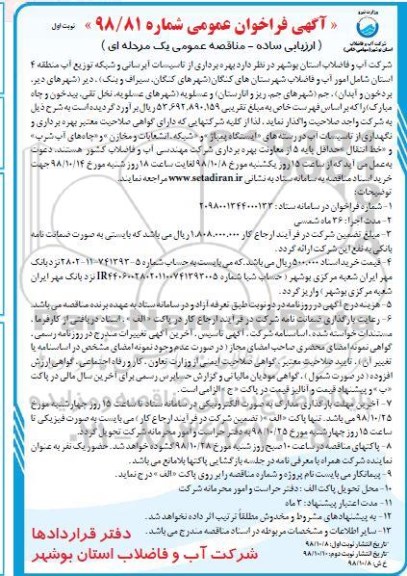 وزارت نیرو
شرکت آب و فاضلاب
استان بوشهر (سهامی خاص)
« آگهی فراخوان عمومی شماره ۹۸/۸۱ »
نوبت اول
( ارزیابی ساده - مناقصه عمومی یک مرحله ای )
شرکت آب و فاضلاب استان بوشهر در نظر دارد بهره برداری از تاسیسات آبرسانی و شبکه توزیع آب منطقه ۴
استان شامل امور آب و فاضلاب شهرستان های کنگان (شهرهای کنگان، سیراف و بنک) ، دیر (شهرهای دیر،
بردخون و آبدان) ، جم (شهرهای جم، ریز و انارستان) و عسلویه (شهرهای عسلویه، نخل تقی، بیدخون و چاه
مبارک) را که بر اساس فهرست خاص به مبلغ تقریبی ۵۳،۶۹۲،۸۹۰،۱۵۹ ریال برآورد گردیده است به شرح ذیل
به شرکت واجد صلاحیت واگذار نماید ، لذا از کلیه شرکتهایی که دارای گواهی صلاحیت معتبر بهره برداری و
نگهداری از تاسیسات آب در رسته های «ایستگاه پمپاژ» و «شبکه، انشعابات و مخازن» و «چاه‌های آب شرب»
و «خط انتقال» حداقل پایه ۵ از معاونت بهره برداری شرکت مهندسی آب و فاضلاب کشور هستند، دعوت
به عمل می آید که از ساعت ۱۵ روز یکشنبه مورخ ۹۸/۱۰/۸ لغایت ساعت ۱۸ روز شنبه مورخ ۹۸/۱۰/۱۴ جهت
خرید اسناد مناقصه به سامانه ستاد به نشانی www.setadiran.ir مراجعه نمایند.
توضیحات:
۱- شماره فراخوان در سامانه ستاد: ۲۰۹۸۰۰۱۳۴۴۰۰۰۱۳۳
۲- مدت اجرا: ۳۶ ماه شمسی
۳- مبلغ تضمین شرکت در فرآیند ارجاع کار ۱،۸۰۸،۰۰۰،۰۰۰ ریال می باشد که بایستی به صورت ضمانت نامه
بانکی به نفع این شرکت ارائه گردد.
۴- قیمت خرید اسناد ۵۰۰،۰۰۰ ریال می باشد که می بایست به حساب شماره ۵-۷۴۱۳۹۳-۱۱-۲۸۰۲ نزد بانک
مهر ایران شعبه مرکزی بوشهر ( حساب شبا شماره
نزد بانک مهر ایران
شعبه مرکزی بوشهر ) واریز گردد.
۵- هزینه درج آگهی در روزنامه در دو نوبت طبق تعرفه آزاد و در سامانه ستاد به عهده برنده مناقصه می باشد.
۶- رعایت بارگذاری ضمانت نامه شرکت در فرآیند ارجاع کار در پاکت «الف» ، اسناد دریافتی از کارفرما ،
مستندات خواسته شده، اساسنامه شرکت ، آگهی تاسیس ، آخرین آگهی تغییرات مندرج در روزنامه رسمی،
گواهی نمونه امضای محضری صاحب امضای مجاز ( در صورت عدم وجود نمونه امضای مشخص در اساسنامه یا
تغییر آن) ، تایید صلاحیت معتبر، گواهی صلاحیت ایمنی از وزارت تعاون ، کار و رفاه اجتماعی، گواهی ارزش
افزوده ( در صورت شمول ) ، گواهی مودیان مالیاتی و گزارش حسابرس رسمی برای آخرین سال مالی در پاکت
«ب» و پیشنهاد قیمت و آنالیز قیمت در پاکت «ج» الزامی است.
۷- آخرین مهلت بارگذاری مدارک به صورت الکترونیکی در سامانه ستاد تا ساعت ۱۵ روز چهارشنبه مورخ
۹۸/۱۰/۲۵ می باشد. تنها پاکت «الف» (تضمین شرکت در فرآیند ارجاع کار) می بایست به صورت فیزیکی تا
ساعت ۱۵ روز چهارشنبه مورخ ۹۸/۱۰/۲۵ به دفتر حراست و امور محرمانه شرکت تحویل گردد.
۸- پاکتهای مناقصه در ساعت ۱۰ صبح روز شنبه مورخ ۹۸/۱۰/۲۸ گشوده خواهد شد. حضور یک نفر به عنوان
نماینده شرکت همراه با معرفی نامه در جلسه بازگشایی پاکتها بلامانع می باشد.
۹- پیمانکار می بایست نام پروژه و شماره مناقصه را بر روی پاکت «الف» درج نماید.
۱۰- محل تحویل پاکت الف : دفتر حراست و امور محرمانه شرکت
۱۱- مدت اعتبار پیشنهاد: ۳ ماه
۱۲- به پیشنهادهای مشروط و مخدوش مطلقاً ترتیب اثر داده نخواهد شد.
۱۳- سایر اطلاعات و مشخصات مربوطه در اسناد مناقصه مندرج می باشد.
تاریخ انتشار نوبت اول: ۹۸/۱۰/۸
تاریخ انتشار نوبت دوم: ۹۸/۱۰/۱۰
خ ش ۹۸/۱۰/۸
دفتر قراردادها
شرکت آب و فاضلاب استان بوشهر